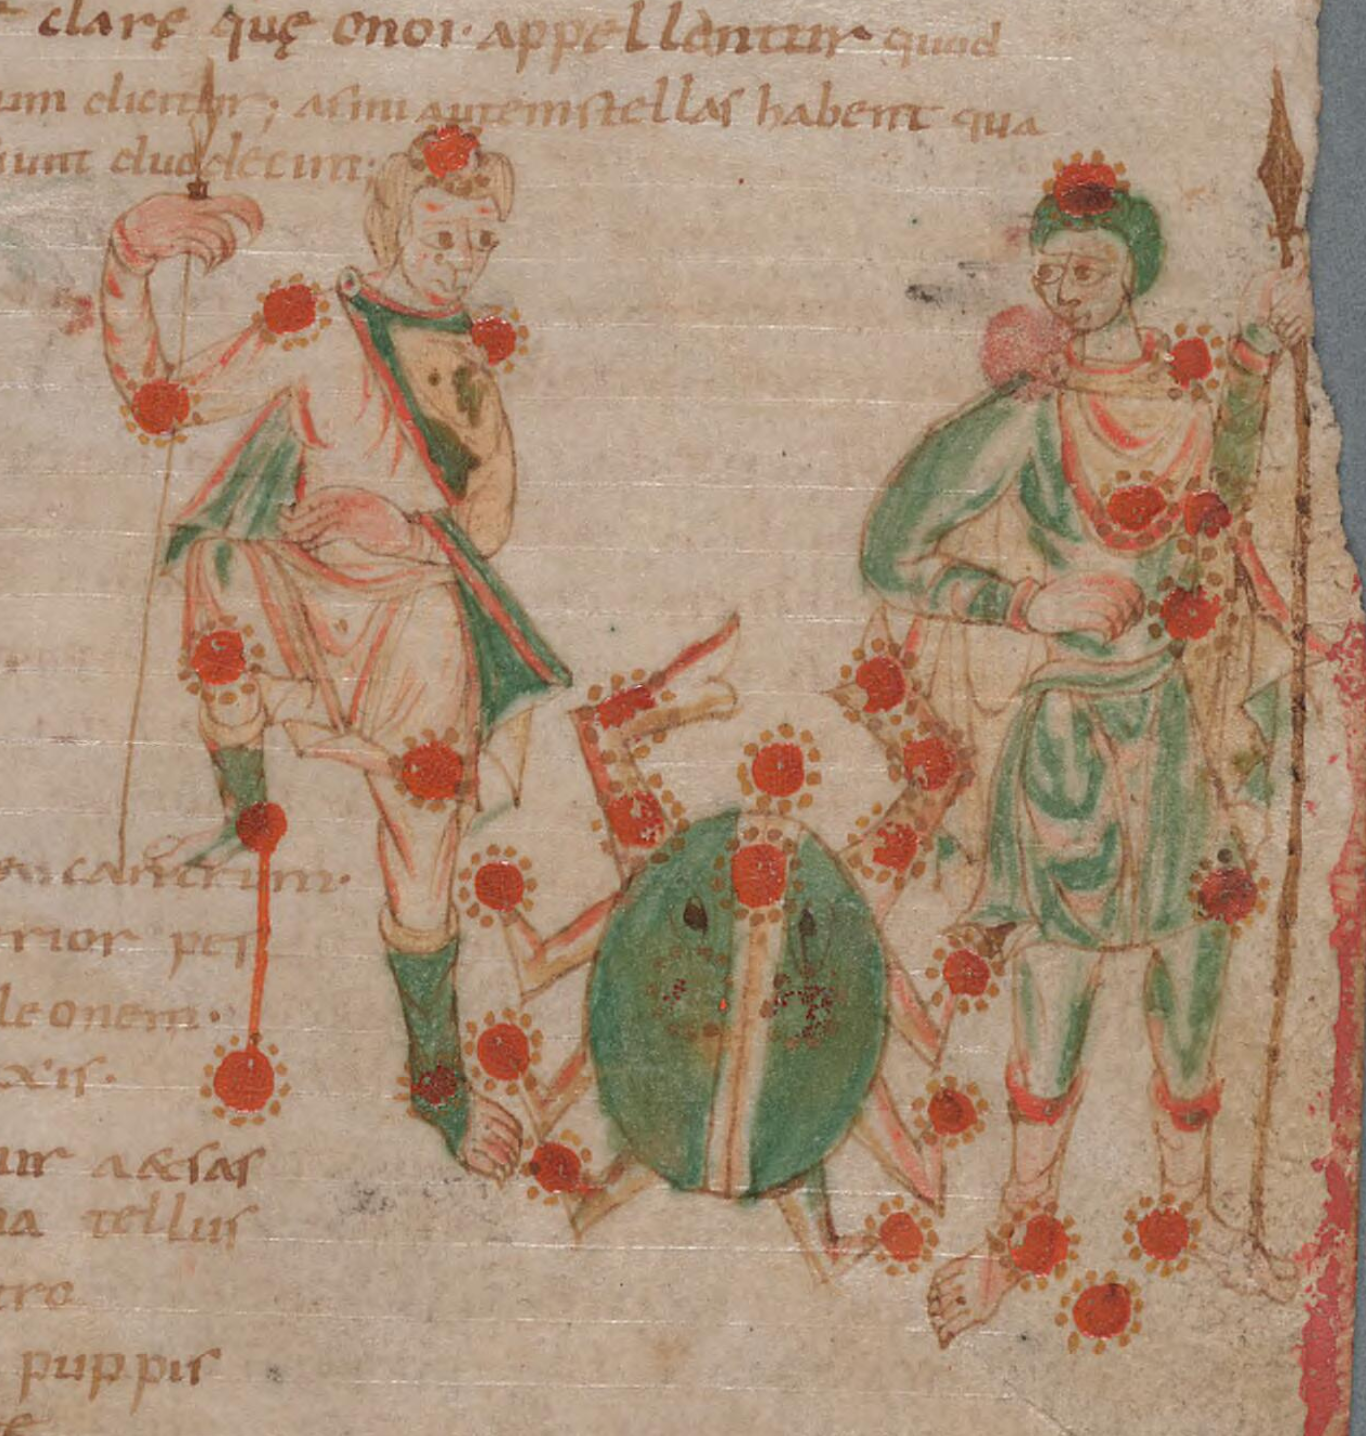 clarę quę onoi · appellantur quod
um dicitur; asini autem stellas habent qua
iunt duodecim ·
cancrum ·
rior pes
leonem ·
axis ·
ur aetas
na tellus
tro
puppis